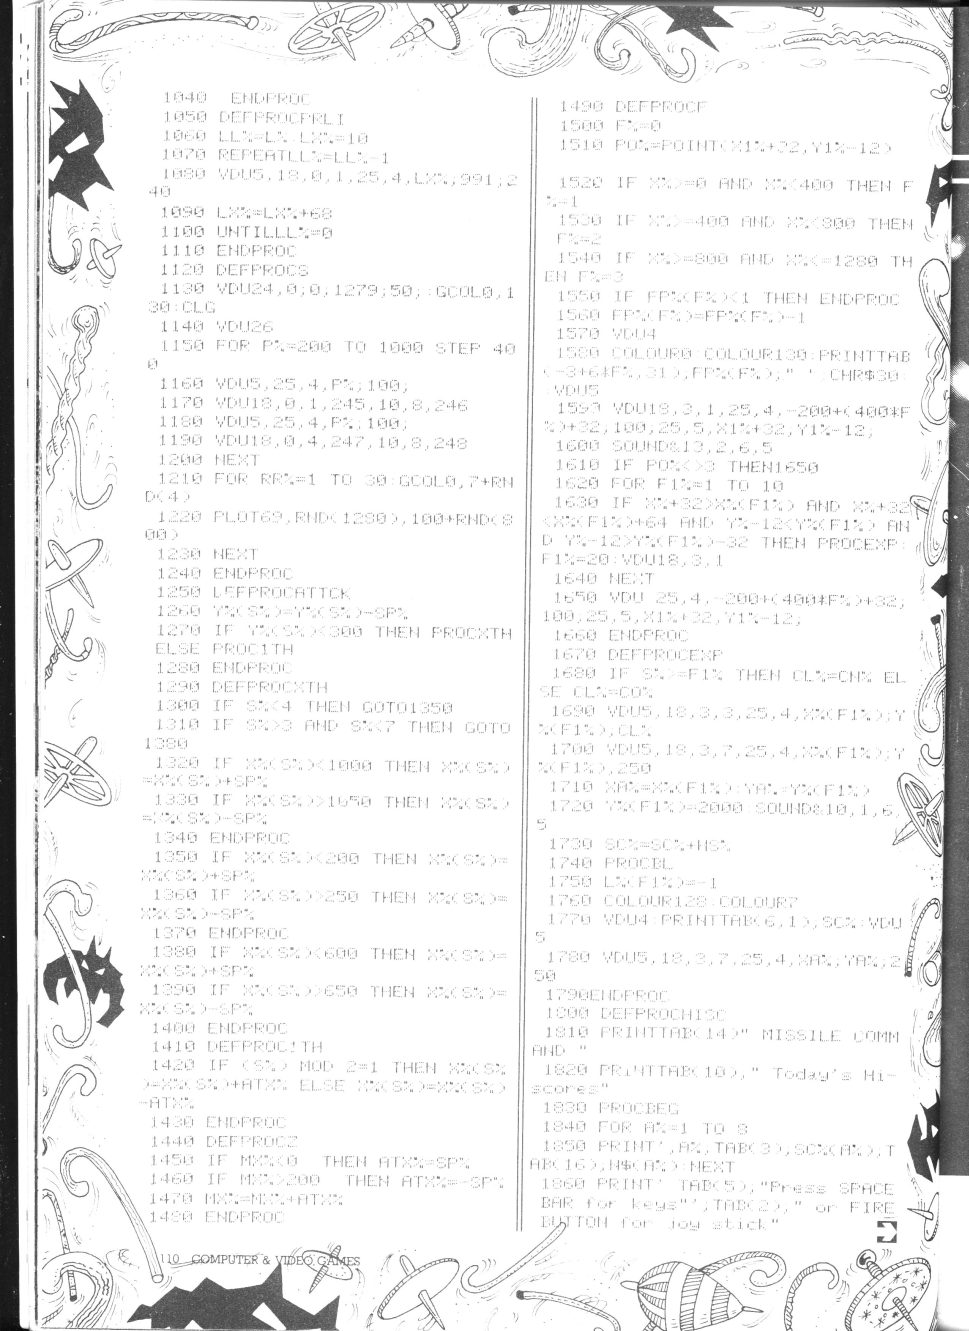 1040   ENDPROC
1050 DEFPROCPRLI
1060 LL%=L%:LX%=10
1070 REPEATLL%=LL%-1
1080 VDU5,18,0,1,25,4,LX%;991;2
40
1090 LX%=LX%+68
1100 UNTILLL%=0
1110 ENDPROC
1120 DEFPROCS
1130 VDU24,0;0;1279;50;:GCOL0,1
30:CLG
1140 VDU26
1150 FOR P%=200 TO 1000 STEP 40
0
1160 VDU5,25,4,P%;100;
1170 VDU18,0,1,245,10,8,246
1180 VDU5,25,4,P%;100;
1190 VDU18,0,4,247,10,8,248
1200 NEXT
1210 FOR RR%=1 TO 30:GCOL0,7+RN
D(4)
1220 PLOT69,RND(1280),100+RND(8
00)
1230 NEXT
1240 ENDPROC
1250 DEFPROCATTCK
1260 Y%(S%)=Y%(S%)-SP%
1270 IF Y%(S%)<300 THEN PROCXTH
ELSE PROC1TH
1280 ENDPROC
1290 DEFPROCXTH
1300 IF S%<4 THEN GOTO1350
1310 IF S%>3 AND S%<7 THEN GOTO
1380
1320 IF X%(S%)<1000 THEN X%(S%)
=X%(S%)+SP%
1330 IF X%(S%)>1050 THEN X%(S%)
=X%(S%)-SP%
1340 ENDPROC
1350 IF X%(S%)<200 THEN X%(S%)=
X%(S%)+SP%
1360 IF X%(S%)>250 THEN X%(S%)=
X%(S%)-SP%
1370 ENDPROC
1380 IF X%(S%)<600 THEN X%(S%)=
X%(S%)+SP%
1390 IF X%(S%)>650 THEN X%(S%)=
X%(S%)-SP%
1400 ENDPROC
1410 DEFPROC1TH
1420 IF (S%) MOD 2=1 THEN X%(S%
)=X%(S%)+ATX% ELSE X%(S%)=X%(S%)
-ATX%
1430 ENDPROC
1440 DEFPROCZ
1450 IF MX%<0  THEN ATX%=SP%
1460 IF MX%>200  THEN ATX%=-SP%
1470 MX%=MX%+ATX%
1480 ENDPROC
1490 DEFPROCF
1500 F%=0
1510 PO%=POINT(X1%+32,Y1%-12)
1520 IF X%>=0 AND X%<400 THEN F
%=1
1530 IF X%>=400 AND X%<800 THEN
F%=2
1540 IF X%>=800 AND X%<=1280 TH
EN F%=3
1550 IF FP%(F%)<1 THEN ENDPROC
1560 FP%(F%)=FP%(F%)-1
1570 VDU4
1580 COLOUR0:COLOUR130:PRINTTAB
(-3+6*F%,31);FP%(F%);" ";CHR$30:
VDU5
1590 VDU18,3,1,25,4,-200+(400*F
%)+32;100;25,5,X1%+32;Y1%-12;
1600 SOUND&13,2,6,5
1610 IF PO%<>3 THEN1650
1620 FOR F1%=1 TO 10
1630 IF X%+32>X%(F1%) AND X%+32
<X%(F1%)+64 AND Y%-12<Y%(F1%) AN
D Y%-12>Y%(F1%)-32 THEN PROCEXP:
F1%=20:VDU18,3,1
1640 NEXT
1650 VDU 25,4,-200+(400*F%)+32;
100;25,5,X1%+32;Y1%-12;
1660 ENDPROC
1670 DEFPROCEXP
1680 IF S%>=F1% THEN CL%=CN% EL
SE CL%=CO%
1690 VDU5,18,3,3,25,4,X%(F1%);Y
%(F1%);CL%
1700 VDU5,18,3,7,25,4,X%(F1%);Y
%(F1%);250
1710 XA%=X%(F1%):YA%=Y%(F1%)
1720 Y%(F1%)=2000:SOUND&10,1,6,
5
1730 SC%=SC%+HS%
1740 PROCBL
1750 L%(F1%)=-1
1760 COLOUR128:COLOUR7
1770 VDU4:PRINTTAB(6,1);SC%:VDU
5
1780 VDU5,18,3,7,25,4,XA%;YA%;2
50
1790ENDPROC
1800 DEFPROCHISC
1810 PRINTTAB(14)" MISSILE COMM
AND "
1820 PRINTTAB(10)," Today's Hi-
scores"
1830 PROCBEG
1840 FOR A%=1 TO 8
1850 PRINT',A%,TAB(3),SC%(A%),T
AB(16),N$(A%):NEXT
1860 PRINT' TAB(5),"Press SPACE
BAR for keys"',TAB(2)," or FIRE
BUTTON for joy stick"
110 COMPUTER & VIDEO GAMES